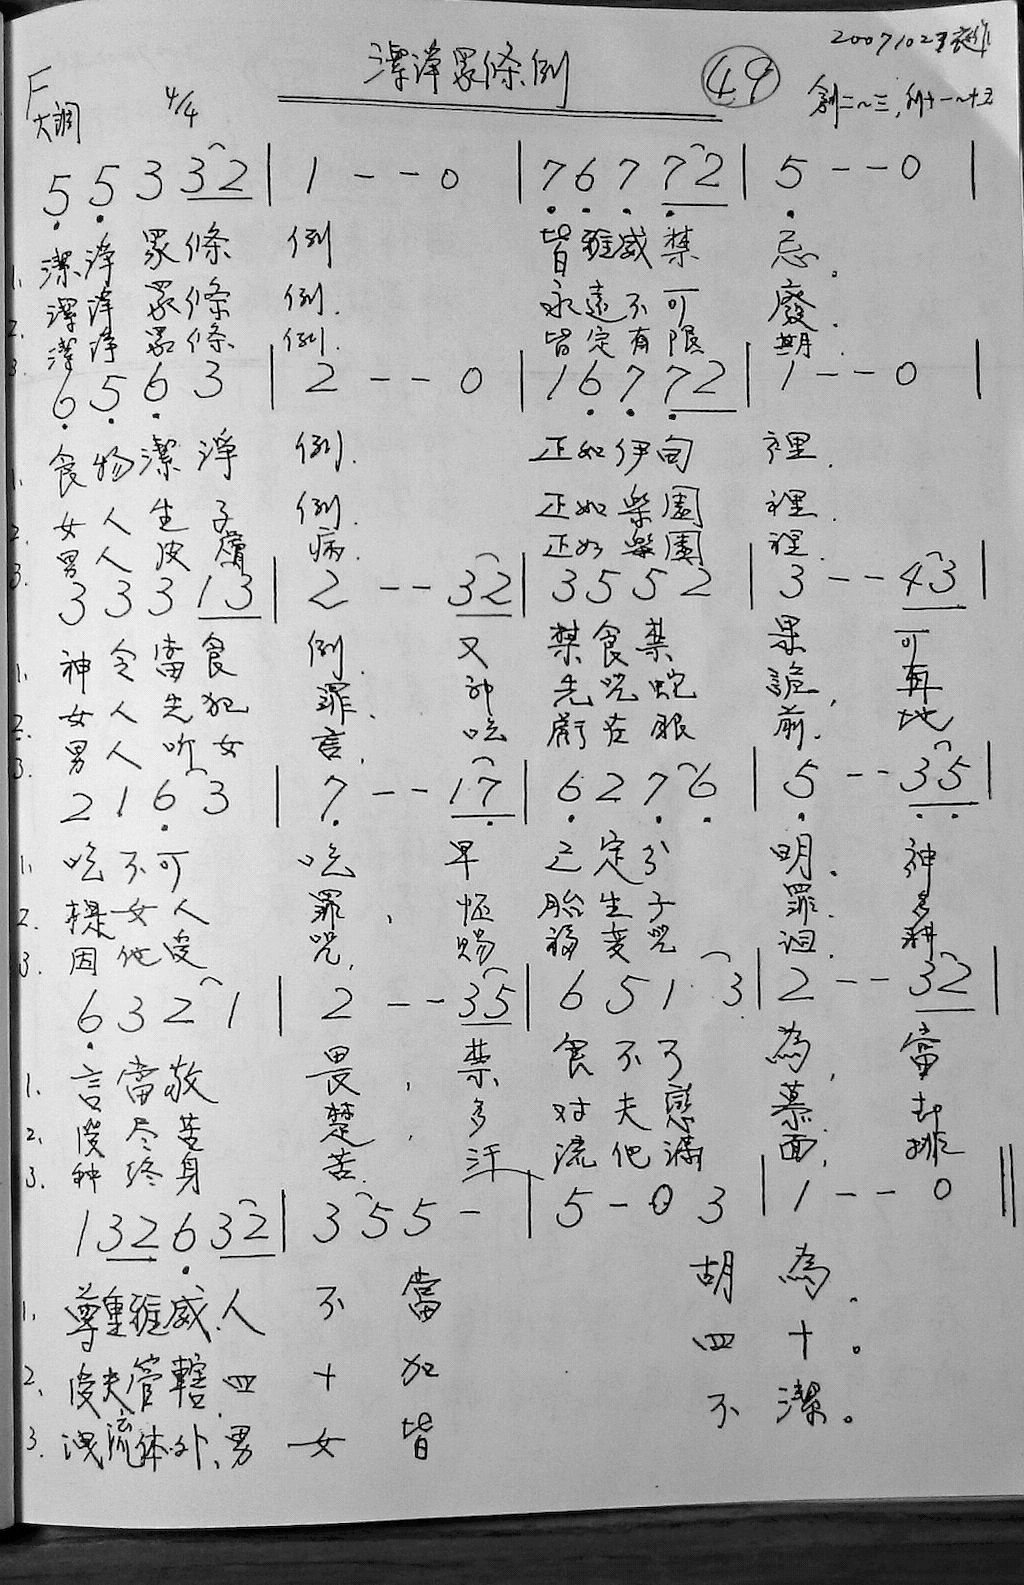 潔淨眾條例 49 20071023
F大調 4/4 創二~三,利十一~十五
5 5 3 3 2 | 1 - - 0 | 7 6 7 7 2 | 5 - - 0 |
1. 潔淨眾條例 皆雅威禁忌.
2. 潔淨眾條例. 永遠不可廢.
3. 潔淨眾條例. 皆定有限期.
6 5 6 3 | 2 - - 0 | 1 6 7 7 2 | 1 - - 0 |
1. 食物潔淨例. 正如伊甸裡.
2. 女人生子例. 正如樂園裡.
3. 男人皮膚病. 正如樂園裡.
3 3 3 1 3 | 2 - - 3 2 | 3 5 5 2 | 3 - - 4 3 |
1. 神令當食例 又禁食禁果 可
2. 女人先犯罪. 神先咒蛇詭, 再
3. 男人听女言, 吃虧在眼前. 地
2 1 6 3 | 7 - - 1 7 | 6 2 7 6 | 5 - - 3 5 |
1. 吃不可吃 早已定分明. 神
2. 女人罪, 怀胎生子罪. 多
3. 因他受咒, 賜福变咒詛. 耕
6 3 2 1 | 2 - - 3 5 | 6 5 1 3 | 2 - - 3 2 |
1. 言當敬畏, 禁食不可為, 當
2. 受尽苦楚, 多对夫戀慕.
3. 种終身苦. 汗流他滿面, 排
1 3 2 6 3 2 | 3 5 5 - | 5 - 0 3 | 1 - - 0 ‖
1. 尊重雅威.人不當 胡為.
2. 受夫管轄.四十加 四十。
3. 洩流体外、男女皆 不潔。